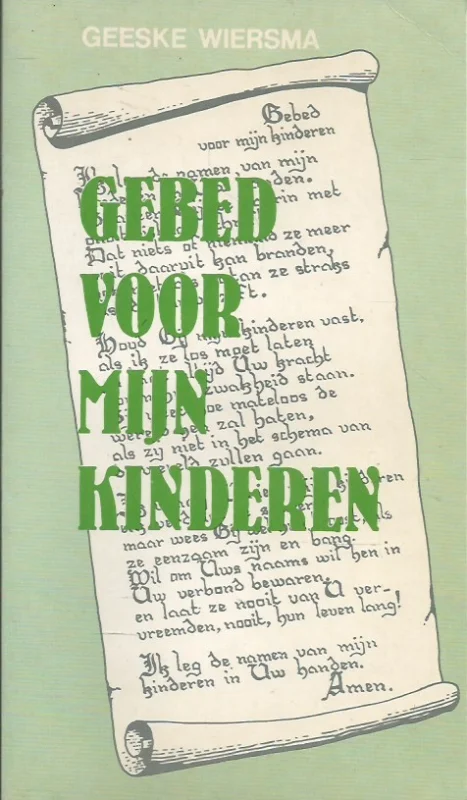 GEESKE WIERSMA
GEBED
VOOR
MIJN
KINDEREN
Gebed
voor mijn kinderen
Ik leg de namen van mijn
handen.
met
Dat niets of niemand ze meer
ooit daaruit kan branden,
ze straks
Houd Gij mijn kinderen vast,
als ik ze los moet laten
Uw kracht
zwakheid staan.
hoe mateloos de
wereld hen zal haten,
als zij niet in het schema van
de wereld zullen gaan.
kinderen
maar wees Gij als
ze eenzaam zijn en bang.
Wil om Uws naams wil hen in
Uw verbond bewaren,
en laat ze nooit van U ver-
vreemden, nooit, hun leven lang!
Ik leg de namen van mijn
kinderen in Uw handen.
Amen.